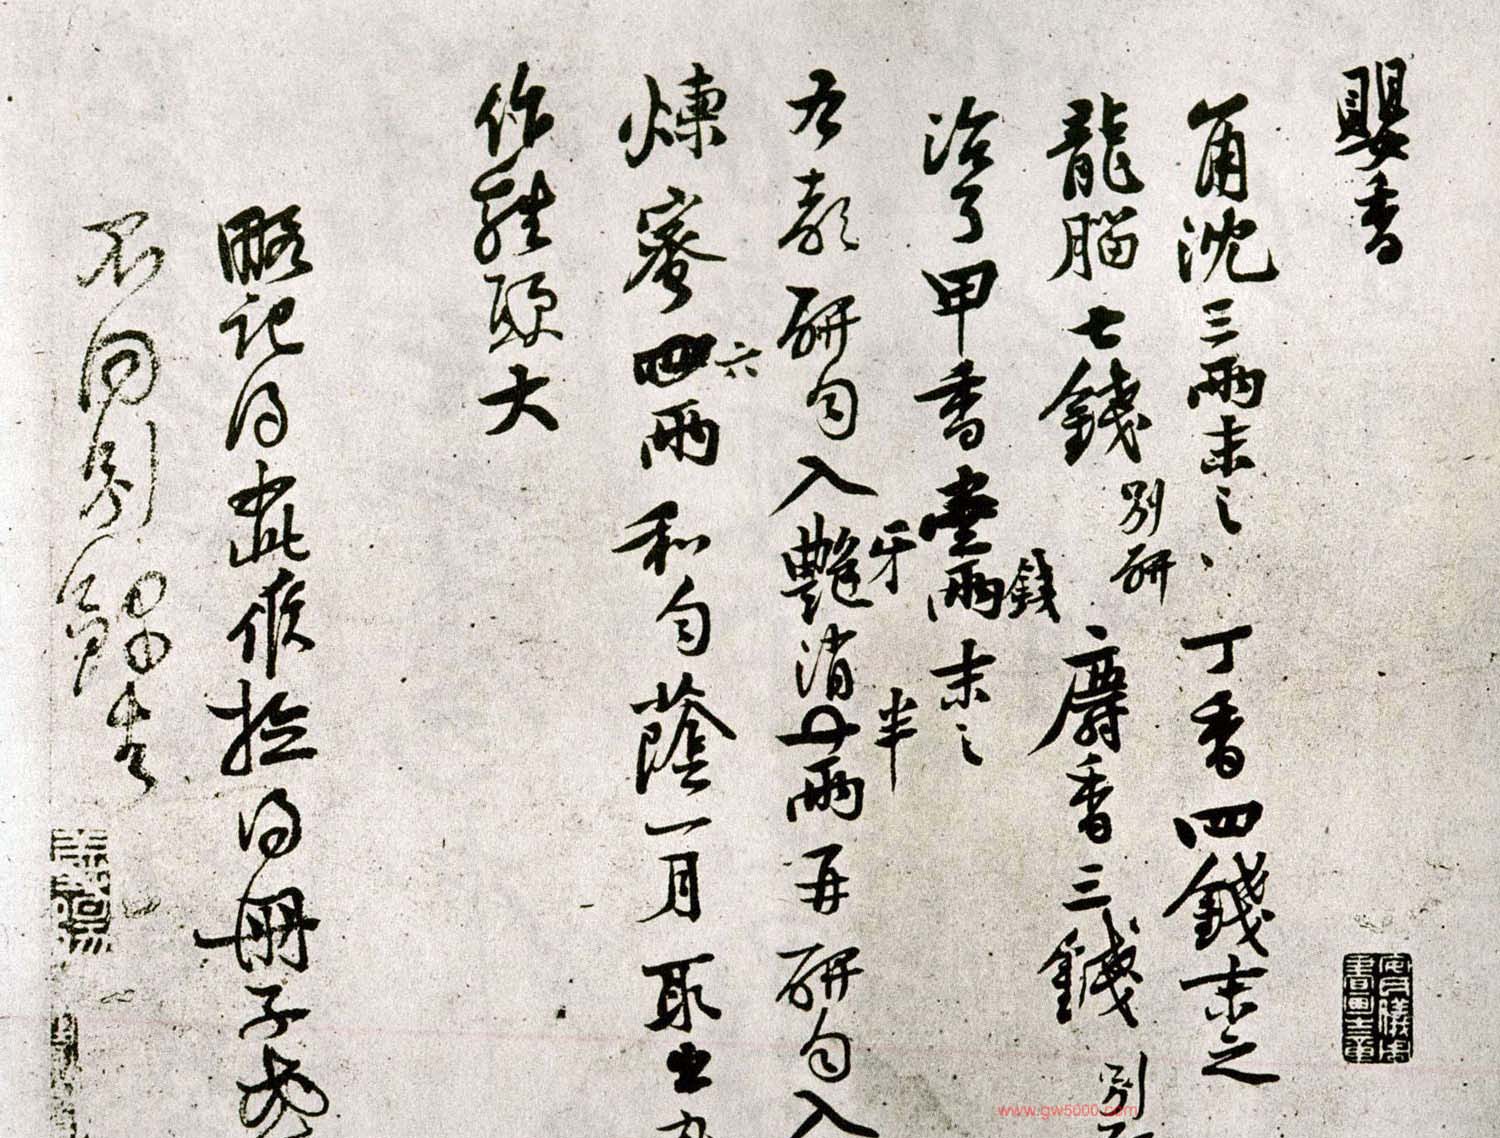 嬰香
角沈三兩末之、丁香四錢末之
龍腦七錢 別研 麝香三錢 別研
治了甲香壹兩 錢 末之
右都研勻入艷消 牙 半 兩再研勻入
煉蜜四 六 兩和勻蔭一月取出丸
作雞頭大
略記得此候檢得冊子或
不同別錄去
安儀周家珍藏
www.gw5000.com